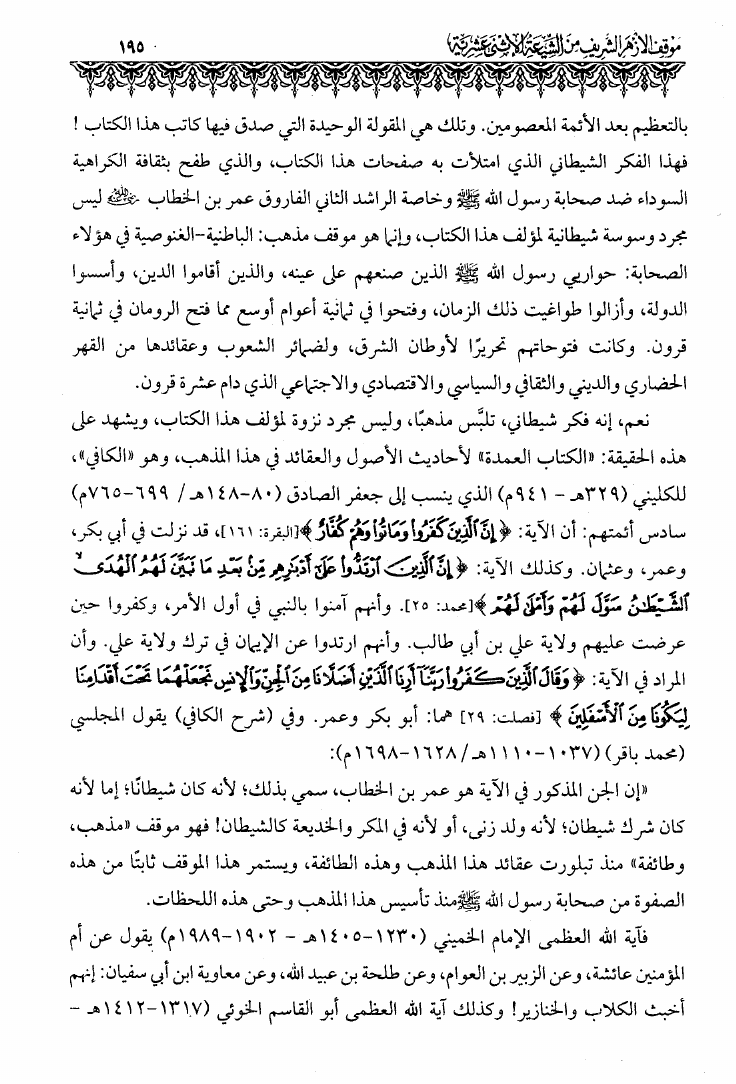 موقف الأزهر الشريف من الشيعة الاثنى عشرية ١٩٥
بالتعظيم بعد الأئمة المعصومين. وتلك هي المقولة الوحيدة التي صدق فيها كاتب هذا الكتاب !
فهذا الفكر الشيطاني الذي امتلأت به صفحات هذا الكتاب، والذي طفح بثقافة الكراهية
السوداء ضد صحابة رسول الله ﷺ وخاصة الراشد الثاني الفاروق عمر بن الخطاب ﵁ ليس
مجرد وسوسة شيطانية لمؤلف هذا الكتاب، وإنما هو موقف مذهب: الباطنية-الغنوصية في هؤلاء
الصحابة: حواريي رسول الله ﷺ الذين صنعهم على عينه، والذين أقاموا الدين، وأسسوا
الدولة، وأزالوا طواغيت ذلك الزمان، وفتحوا في ثمانية أعوام أوسع مما فتح الرومان في ثمانية
قرون. وكانت فتوحاتهم تحريرًا لأوطان الشرق، ولضمائر الشعوب وعقائدها من القهر
الحضاري والديني والثقافي والسياسي والاقتصادي والاجتماعي الذي دام عشرة قرون.
نعم، إنه فكر شيطاني، تلبَّس مذهبًا، وليس مجرد نزوة لمؤلف هذا الكتاب، ويشهد على
هذه الحقيقة: «الكتاب العمدة» لأحاديث الأصول والعقائد في هذا المذهب، وهو «الكافي»،
للكليني (٣٢٩هـ - ٩٤١م) الذي ينسب إلى جعفر الصادق (٨٠-١٤٨هـ / ٦٩٩-٧٦٥م)
سادس أئمتهم: أن الآية: ﴿ إِنَّ الَّذِينَ كَفَرُوا وَمَاتُوا وَهُمْ كُفَّارٌ ﴾[البقرة: ١٦١]، قد نزلت في أبي بكر،
وعمر، وعثمان. وكذلك الآية: ﴿ إِنَّ الَّذِينَ ارْتَدُّوا عَلَىٰ أَدْبَارِهِم مِّنْ بَعْدِ مَا تَبَيَّنَ لَهُمُ الْهُدَى ۙ
الشَّيْطَانُ سَوَّلَ لَهُمْ وَأَمْلَىٰ لَهُمْ ﴾[محمد: ٢٥]. وأنهم آمنوا بالنبي في أول الأمر، وكفروا حين
عرضت عليهم ولاية علي بن أبي طالب. وأنهم ارتدوا عن الإيمان في ترك ولاية علي. وأن
المراد في الآية: ﴿ وَقَالَ الَّذِينَ كَفَرُوا رَبَّنَا أَرِنَا الَّذَيْنِ أَضَلَّانَا مِنَ الْجِنِّ وَالْإِنسِ نَجْعَلْهُمَا تَحْتَ أَقْدَامِنَا
لِيَكُونَا مِنَ الْأَسْفَلِينَ ﴾ [فصلت: ٢٩] هما: أبو بكر وعمر. وفي (شرح الكافي) يقول المجلسي
(محمد باقر) (١٠٣٧-١١١٠هـ/١٦٢٨-١٦٩٨م):
«إن الجن المذكور في الآية هو عمر بن الخطاب، سمي بذلك؛ لأنه كان شيطانًا؛ إما لأنه
كان شرك شيطان؛ لأنه ولد زنى، أو لأنه في المكر والخديعة كالشيطان! فهو موقف «مذهب،
وطائفة» منذ تبلورت عقائد هذا المذهب وهذه الطائفة، ويستمر هذا الموقف ثابتًا من هذه
الصفوة من صحابة رسول الله ﷺ منذ تأسيس هذا المذهب وحتى هذه اللحظات.
فآية الله العظمى الإمام الخميني (١٢٣٠-١٤٠٥هـ - ١٩٠٢-١٩٨٩م) يقول عن أم
المؤمنين عائشة، وعن الزبير بن العوام، وعن طلحة بن عبيد الله، وعن معاوية ابن أبي سفيان: إنهم
أخبث الكلاب والخنازير! وكذلك آية الله العظمى أبو القاسم الخوئي (١٣١٧-١٤١٢هـ -